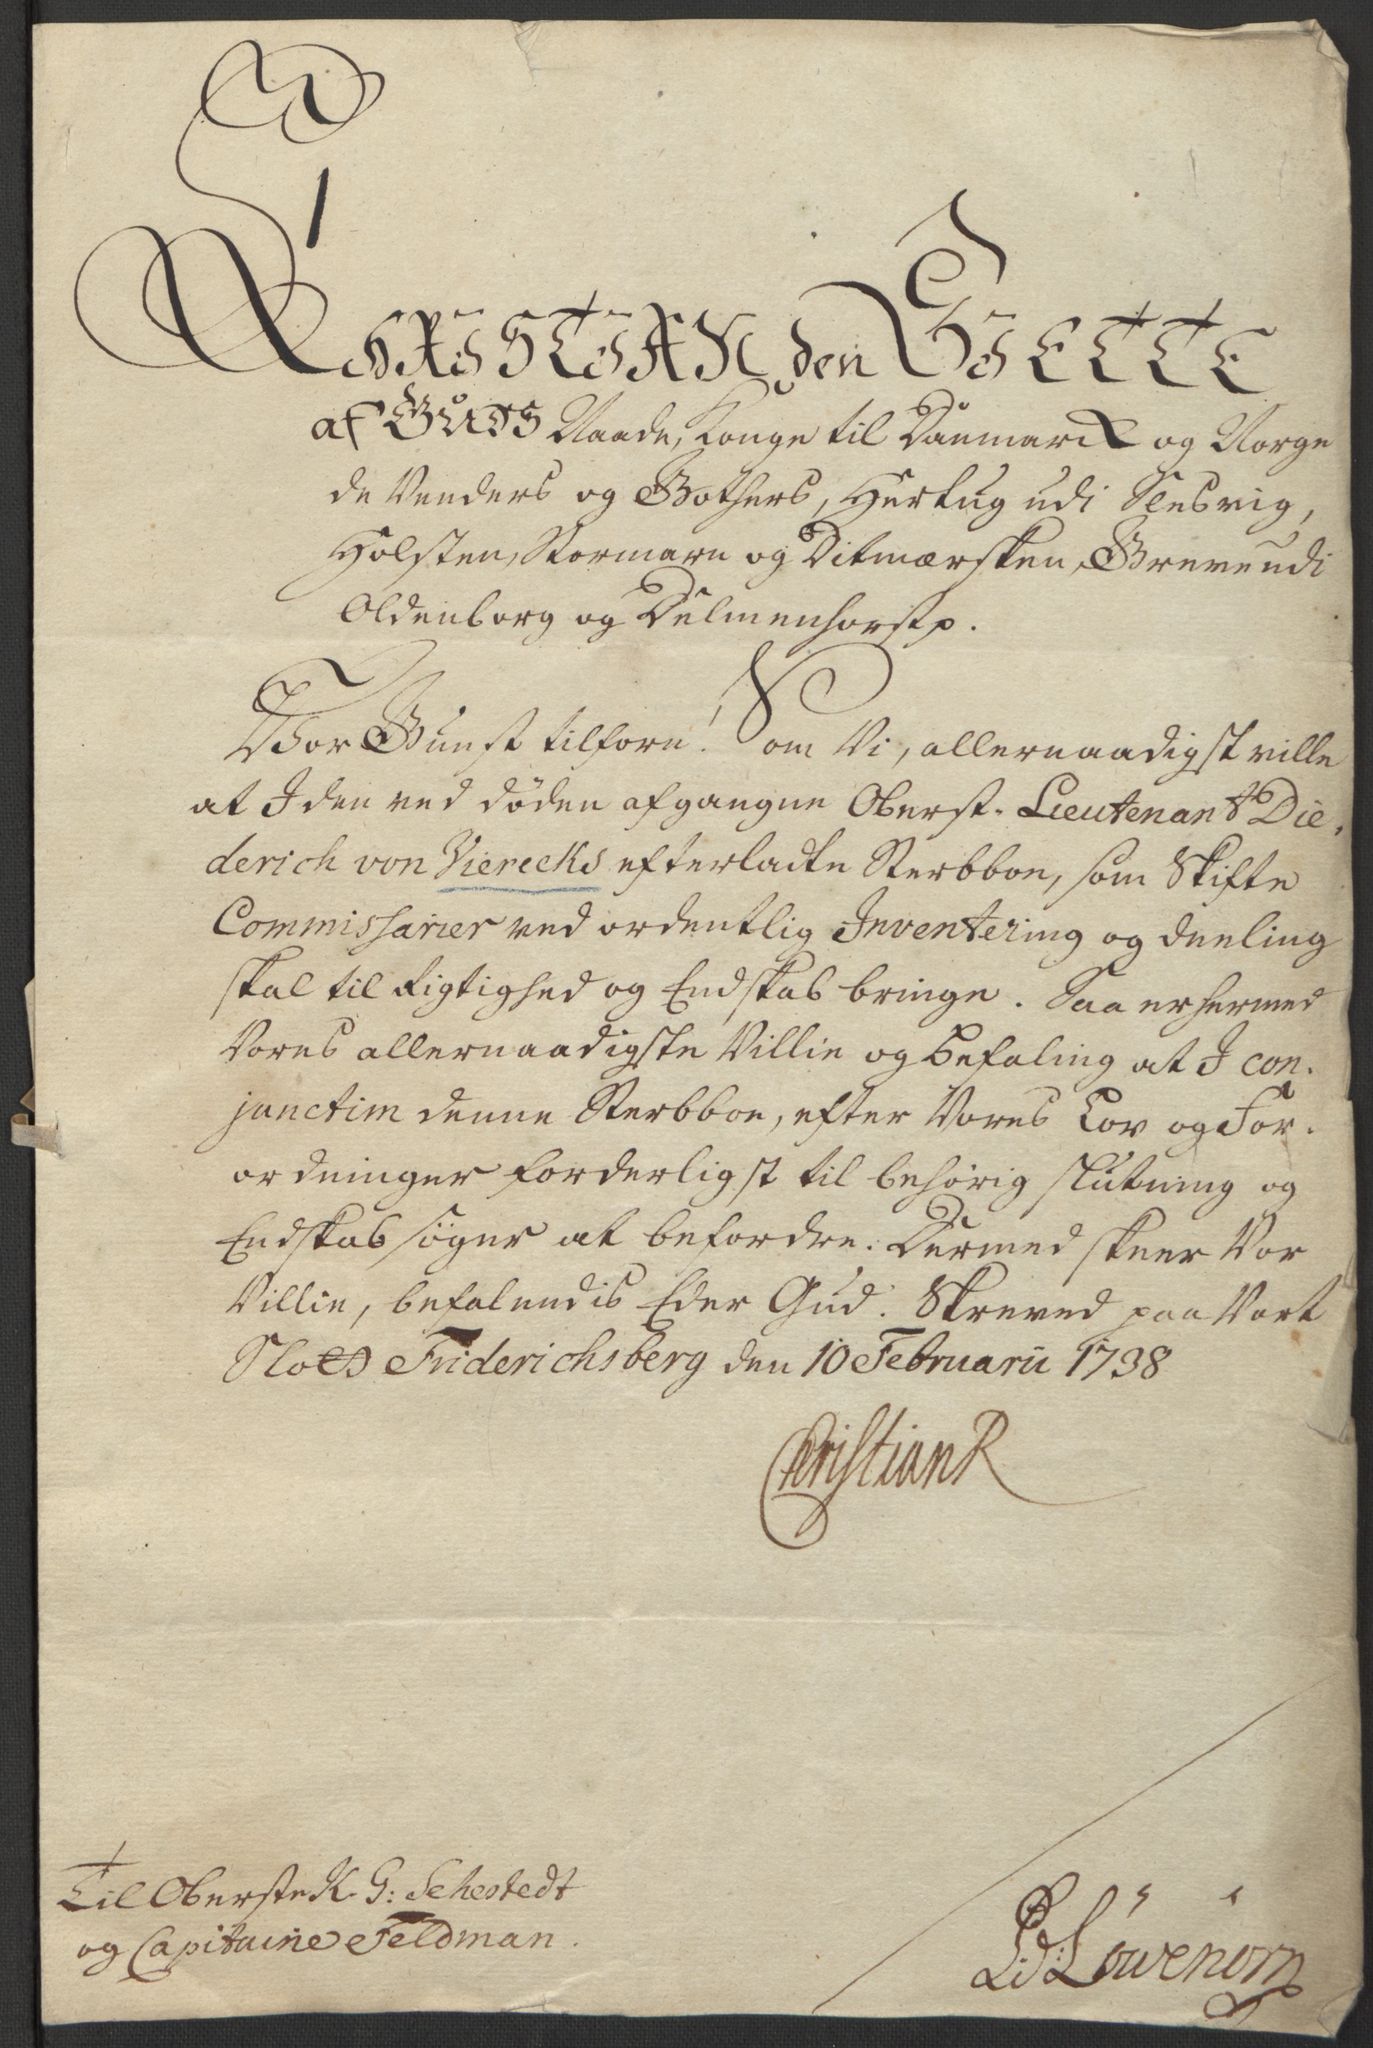 CHRISTIAN den SIETTE
af GUDS Naade, Konge til Danmarck og Norge
de Venders og Gothers, Hertug udi Slesvig,
Holsten, Stormarn og Ditmærsken, Greve udi
Oldenborg og Delmenhorst p.
Vor Gunst tilforn! Som Vi, allernaadigst ville
at I den ved døden afgangne Oberst-Lieutenant Die-
derich von Vierecks efterladte Sterbboe, som Skifte
Commissarier ved ordentlig Inventering og deeling
skal til Rigtighed og Endskab bringe. Saa er hermed
Vores allernaadigste Villie og befaling at I con-
junctim denne Sterbboe, efter Vores Lov og For-
ordninger forderligst til behørig slutning og
Endskab søger at befordre. Dermed skeer Vor
Villie, befalendis Eder Gud. Skreved paa Vort
Slot Friderichsberg den 10 Februarii 1738
Christian R
Til Oberste K G: Sehestedt
og Capitaine Feldman.
Löwenörn